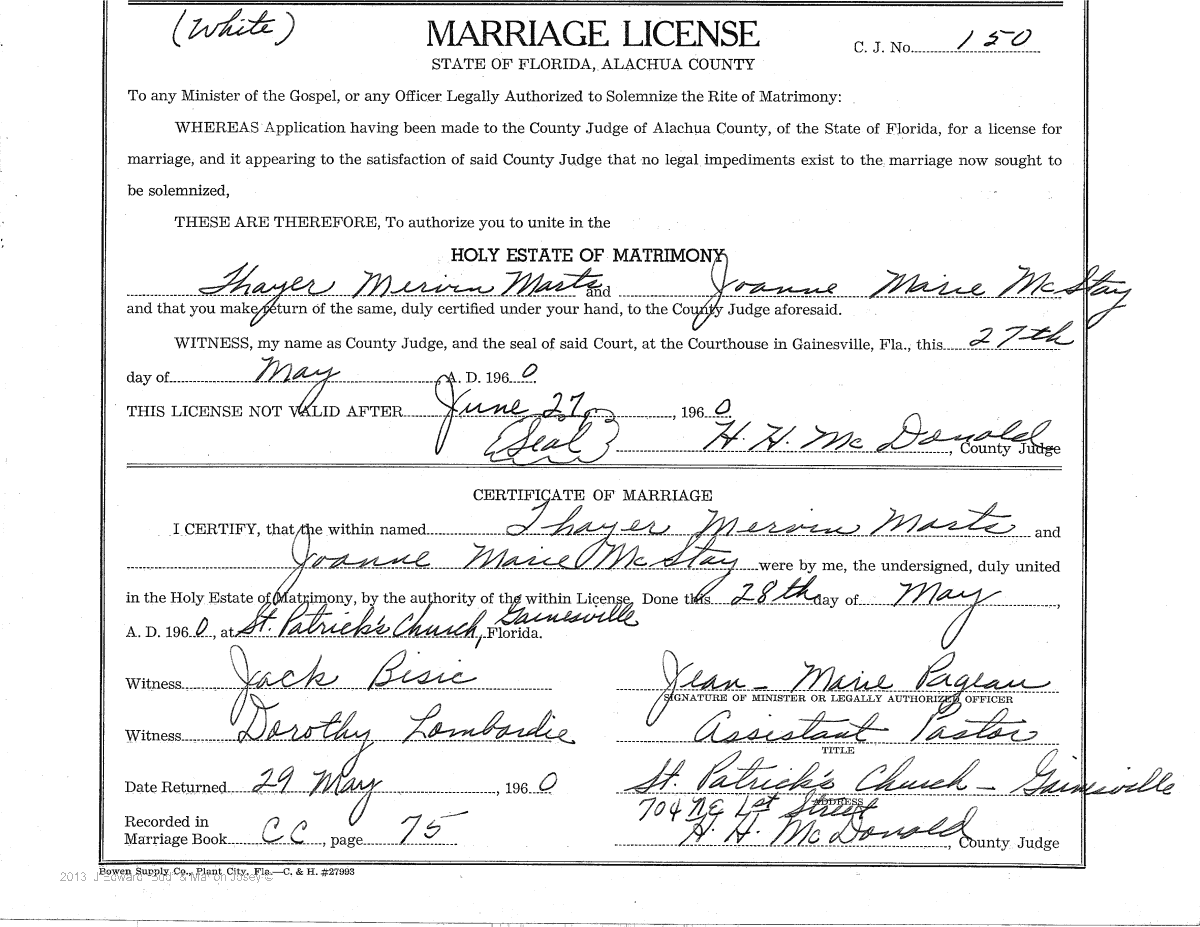 (White)
MARRIAGE LICENSE
C. J. No. 150
STATE OF FLORIDA, ALACHUA COUNTY
To any Minister of the Gospel, or any Officer Legally Authorized to Solemnize the Rite of Matrimony:
WHEREAS Application having been made to the County Judge of Alachua County, of the State of Florida, for a license for
marriage, and it appearing to the satisfaction of said County Judge that no legal impediments exist to the marriage now sought to
be solemnized,
THESE ARE THEREFORE, To authorize you to unite in the
HOLY ESTATE OF MATRIMONY
Thayer Mervin Marts and Joanne Marie McStay
and that you make return of the same, duly certified under your hand, to the County Judge aforesaid.
WITNESS, my name as County Judge, and the seal of said Court, at the Courthouse in Gainesville, Fla., this 27th
day of May A. D. 1960
THIS LICENSE NOT VALID AFTER June 27, 1960
(Seal) H. H. McDonald, County Judge
CERTIFICATE OF MARRIAGE
I CERTIFY, that the within named Thayer Mervin Marts and
Joanne Marie McStay were by me, the undersigned, duly united
in the Holy Estate of Matrimony, by the authority of the within License. Done this 28th day of May,
A. D. 1960, at St. Patrick's Church, Gainesville, Florida.
Witness Jack Bisic Jean-Marie Pageau
SIGNATURE OF MINISTER OR LEGALLY AUTHORIZED OFFICER
Witness Dorothy Lombardie Assistant Pastor
TITLE
Date Returned 29 May, 1960 St. Patrick's Church - Gainesville
ADDRESS
704 NE 1st Street
Recorded in
Marriage Book CC, page 75 H. H. McDonald, County Judge
Bowen Supply Co., Plant City, Fla.—C. & H. #27993
2013 J Edward "Bud" & Marion Josey ©